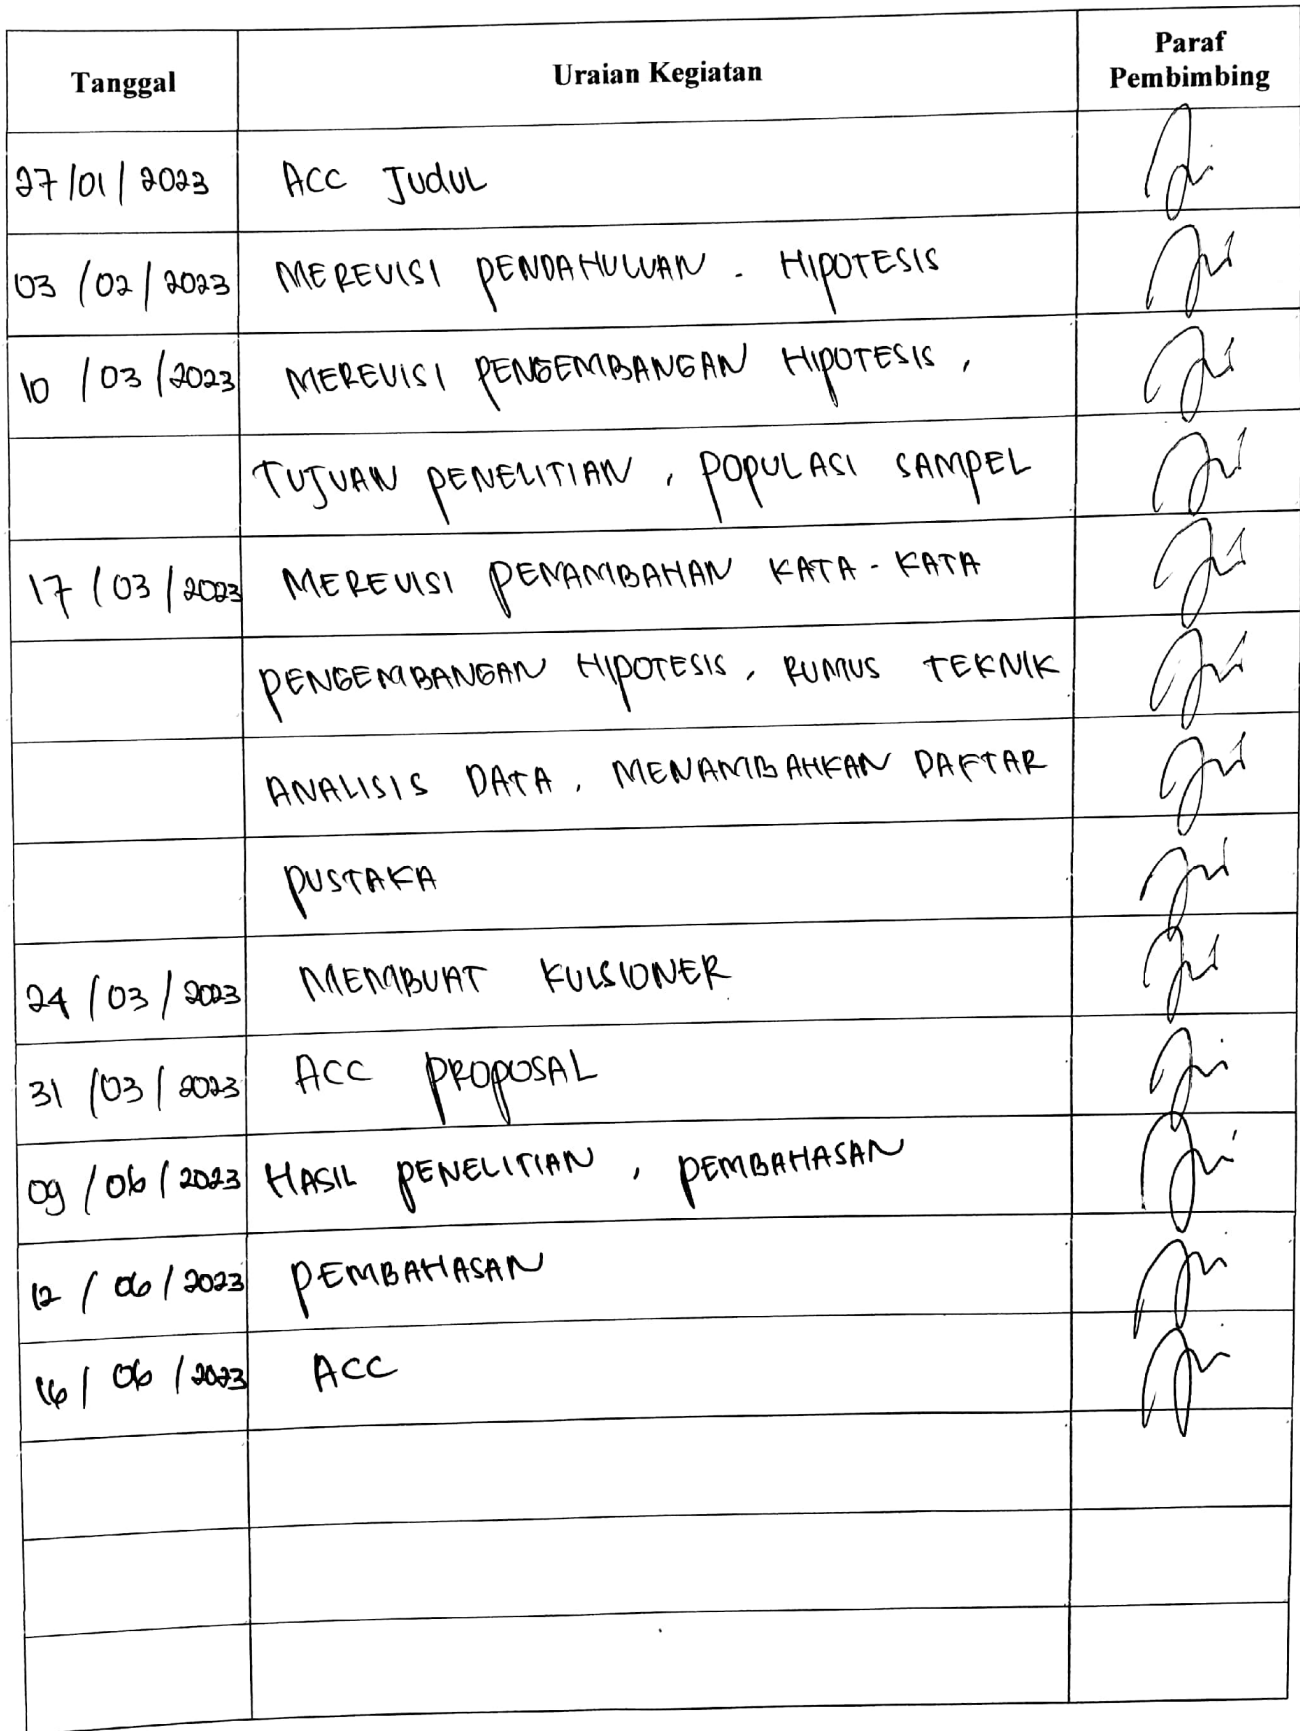 Tanggal Uraian Kegiatan Paraf Pembimbing
27/01/2023 ACC JUDUL
03/02/2023 MEREVISI PENDAHULUAN - HIPOTESIS
10/03/2023 MEREVISI PENGEMBANGAN HIPOTESIS,
TUJUAN PENELITIAN, POPULASI SAMPEL
17/03/2023 MEREVISI PENAMBAHAN KATA-KATA
PENGEMBANGAN HIPOTESIS, RUMUS TEKNIK
ANALISIS DATA, MENAMBAHKAN DAFTAR
PUSTAKA
24/03/2023 MEMBUAT KULSIONER
31/03/2023 ACC PROPOSAL
09/06/2023 HASIL PENELITIAN, PEMBAHASAN
12/06/2023 PEMBAHASAN
16/06/2023 ACC